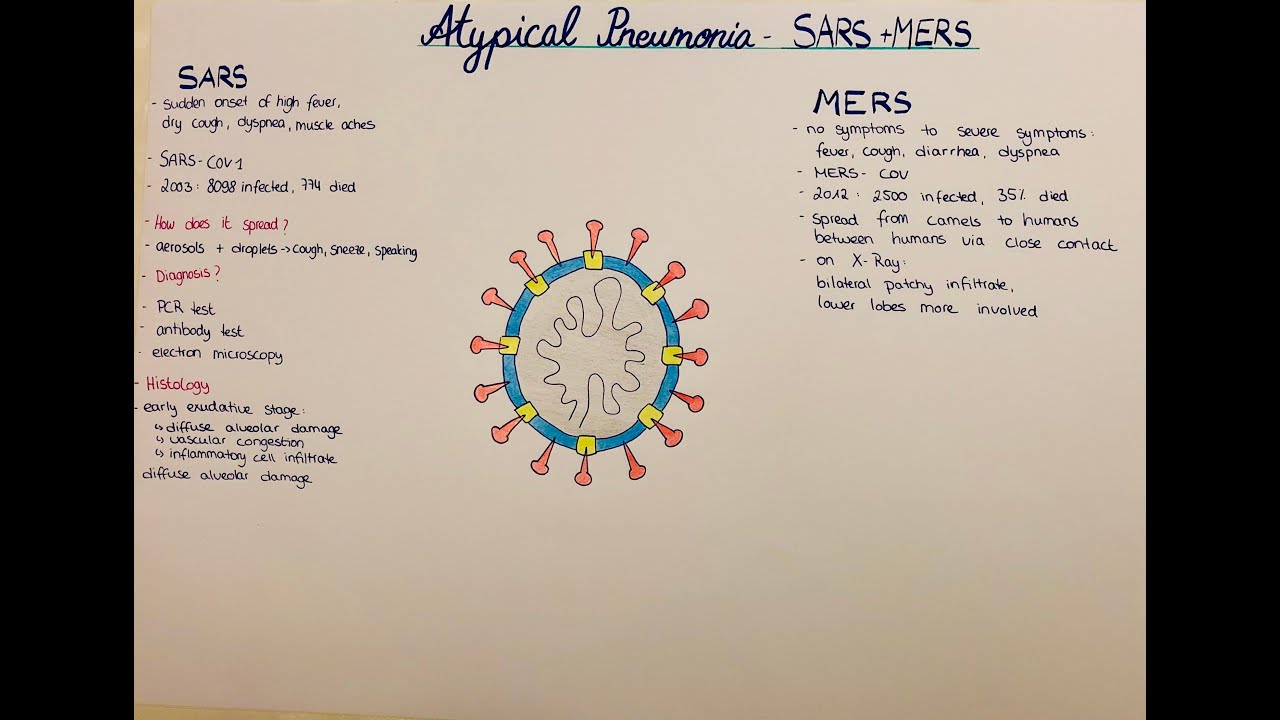 Atypical Pneumonia - SARS + MERS
SARS
- sudden onset of high fever,
dry cough, dyspnea, muscle aches
- SARS-COV1
- 2003: 8098 infected, 774 died
- How does it spread?
- aerosols + droplets → cough, sneeze, speaking
- Diagnosis?
- PCR test
- antibody test
- electron microscopy
- Histology
- early exudative stage:
↳ diffuse alveolar damage
↳ vascular congestion
↳ inflammatory cell infiltrate
diffuse alveolar damage
MERS
- no symptoms to severe symptoms:
fever, cough, diarrhea, dyspnea
- MERS-COV
- 2012: 2500 infected, 35% died
- spread from camels to humans
between humans via close contact
- on X-Ray:
bilateral patchy infiltrate,
lower lobes more involved